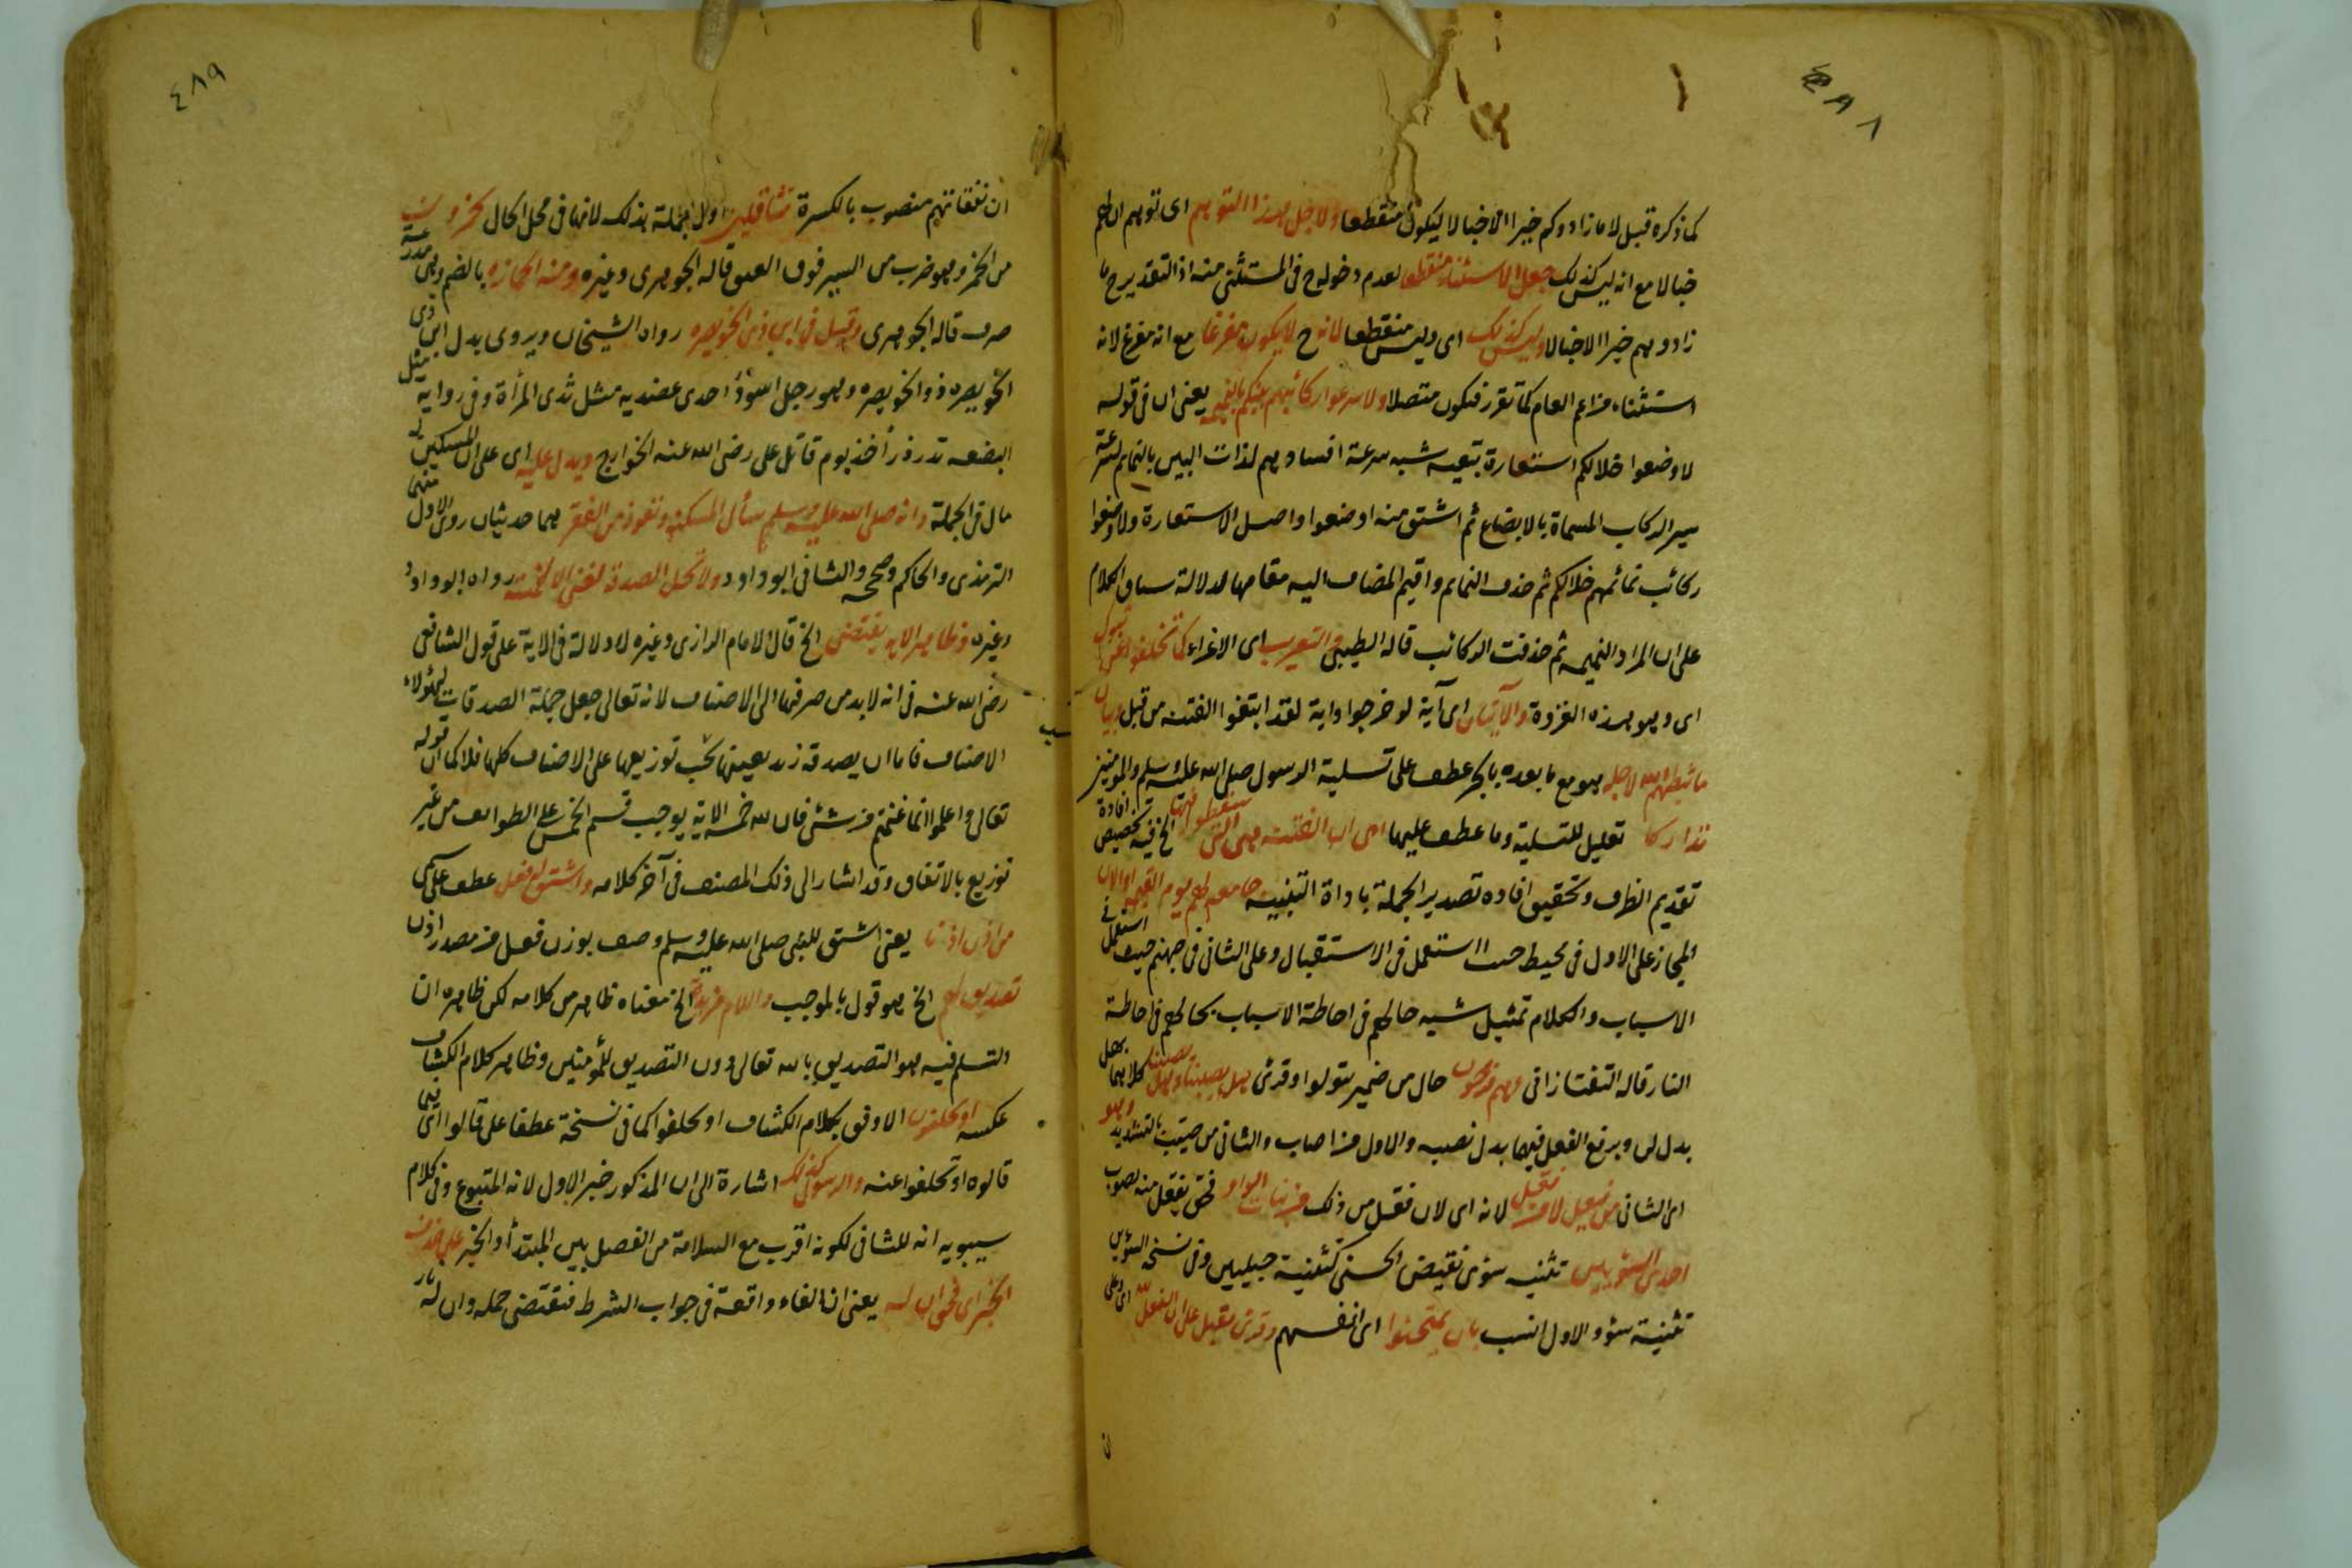 ٤٨٨
كما ذكره قبل لا ما زادوكم خيرا الا خبالا ليكون منقطعا ولاجل هذا التوهم اى توهم ان لهم
خبالا مع انه ليس كذلك جعل الاستثناء منقطعا لعدم دخوله ح فى المستثنى منه اذ التقدير ح ما
زادوهم خيرا الا خبالا وليس كذلك اى وليس منقطعا لانه ح لا يكون مفرغا مع انه مفرغ لانه
استثناء من اعم العام كما تقرر فيكون متصلا ولاسرعوا ركائبهم بينكم بالنميمة يعنى ان فى قوله
لاوضعوا خلالكم استعارة تبعيه شبه سرعة افسادهم لذات البين بالنمايم لسرعة
سير الركاب المسماة بالايضاع ثم اشتق منه اوضعوا واصل الاستعارة ولاوضعوا
ركائب نمائمهم خلالكم ثم حذف النمايم واقيم المضاف اليه مقامها لدلالة سياق الكلام
على ان المراد النميمه ثم حذفت الركائب قاله الطيبى والتعريب اى الاغراء كما تخلفوا عن تبوك
اى وهو بهذه الغزوة والآيتان اى آية لو خرجوا واية لقد ابتغوا الفتنه من قبل وبيان
ما ثبطهم الله لاجله هو مع ما بعده بالجر عطف على تسلية الرسول صلى الله عليه وسلم والمؤمنين
تداركا تعليل للتسلية وما عطف عليها اى ان الفتنه هى التى سقطوا فيها الخ فيه تخصيص افادة
تقديم الظرف وتحقيق افاده تصدير الجملة باداة التنبيه جامعه لهم يوم القيمه او الان
المجاز على الاول فى محيط حيث استعمل فى الاستقبال وعلى الثانى فى جهنم حيث استعمل فى
الاسباب والكلام تمثيل شبه حالهم فى احاطة الاسباب بحالهم فى احاطة
النار قاله التفتازانى وهم فرحون حال من ضمير يتولوا وقرئ هل يصيبنا وهل يصيبنا كلاهما بهل
بدل لن وبرفع الفعل فيهما بدل نصبه والاول من اصاب والثانى من صيّب بالتشديد وهو
اى الثانى من فيعل لا من فعّل لانه اى لان فعّل من ذلك من بنات الواو فحق يفعّل منه يصوب
احدى السوءيين تثنيه سوءى نقيض الحسنى كتثنية حبليين وفى نسخه السوءين
تثنية سوء والاول انسب بان يمتحنوا اى انفسهم وقرئ يقبل على ان الفعل لله اى وعلى
٤٨٩
ان نفقاتهم منصوب بالكسرة متثاقلين اول الجملة بذلك لانها فى محل الحال يجمزون
من الجمز وهو ضرب من السير فوق العنق قاله الجوهرى وغيره ومنه الجمازه بالضم وهى مدرعة
صوف قاله الجوهرى وقيل فى ابن ذى الخويصره رواه الشيخان ويروى بدل ابن ذى
الخويصره ذو الخويصره وهو رجل اسود احدى عضديه مثل ثدى المرأة وفى رواية مثل
البضعه تدردر أخذ يوم قاتل على رضى الله عنه الخوارج ويدل عليه اى على ان للمسكين
مال فى الجملة وانه صلى الله عليه وسلم سأل المسكنة وتعوذ من الفقر هما حديثان روى الاول منهما
الترمذى والحاكم وصححه والثانى ابو داود ولا تحل الصدقة لغنى الا لخمسة رواه ابو داود
وغيره وظاهر الايه يقتضى الخ قال الامام الرازى وغيره لا دلالة فى الاية على قول الشافعى
رضى الله عنه فى انه لا بد من صرفها الى الاصناف لانه تعالى جعل جملة الصدقات لهؤلاء
الاصناف فاما ان يصدقه زيد بعينها يجب توزيعها على الاصناف كلها فلا كما ان قوله
تعالى واعلموا انما غنمتم من شئ فان لله خمسه الاية يوجب قسم الخمس على الطوائف من غير
توزيع بالاتفاق وقد اشار الى ذلك المصنف فى آخر كلامه واشتق له فعل عطف على سمى
من اذن اذنا يعنى اشتق للنبى صلى الله عليه وسلم وصف بوزن فعل من مصدر اذن
تصديق لهم الخ هو قول بالموجب واللام مزيدة الخ معناه ظاهر من كلامه لكن ظاهره ان
التسلم فيه هو التصديق بالله تعالى دون التصديق للمؤمنين وظاهر كلام الكشاف
عكسه او يحلفون الاوفق بكلام الكشاف او يحلفوا كما فى نسخة عطفا على قالوا اى فيما
قالوه او تخلفوا عنه والرسول كذلك اشارة الى ان المذكور خبر الاول لانه المتبوع وفى كلام
سيبويه انه للثانى لكونه اقرب مع السلامة من الفصل بين المبتدأ والخبر على حذف
الخبر اى فحق ان له يعنى ان الفاء واقعة فى جواب الشرط فتقتضى جمله وان له نار